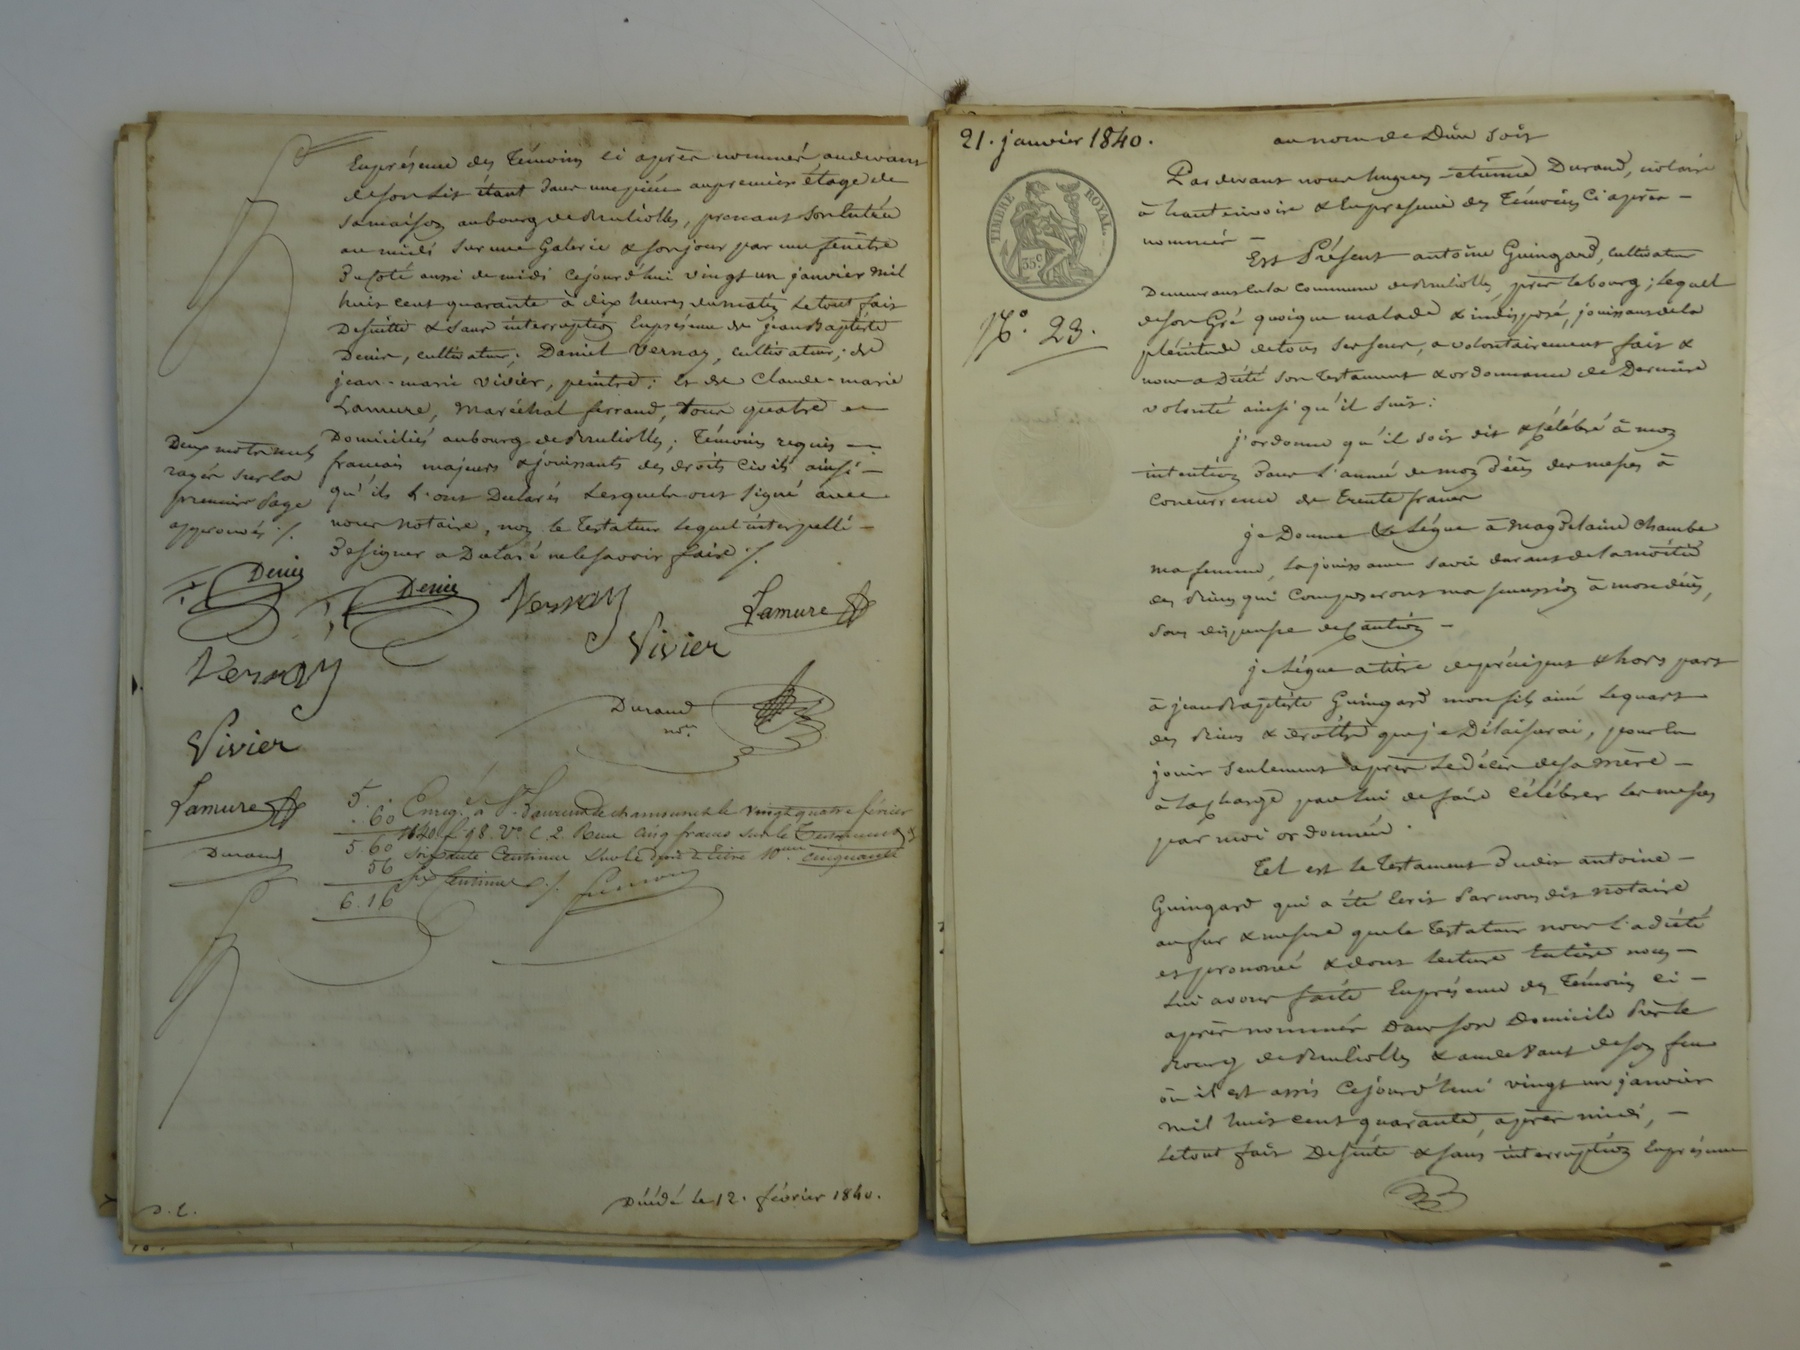 En présence des témoins ci après nommés audevant
de son lit étant dans une pièce au premier étage de
sa maison au bourg de Brulioles, prenant son entrée
au midi sur une Galerie & son jour par une fenêtre
du coté aussi de midi cejourd'hui vingt un janvier mil
huit cent quarante à dix heures du matin le tout fait
De suitte & sans interruption En présence de jean Baptiste
Denis, cultivateur; Daniel Vernay, cultivateur; de
jean-marie Vivier, peintre; Et de Claude-marie
Lamure, Maréchal ferrand, tous quatre
Domiciliés au bourg de Brulioles; Témoins requis —
francais majeurs & jouissants des droits civils ainsi —
qu'ils l'ont Déclarés Lesquels ont signé avec
nous notaire, non le Testateur lequel interpellé —
De signer a Déclaré ne le savoir faire ./.
Deux mots nuls
rayés sur la
premiere page
approuvés ./.
Denis
Denis Vernay Lamure
Vivier
Vernay
Durand
nre
Vivier
Lamure
Durand
5. "
. 60
5. 60
56
6. 16
Enregé. à St. Laurent de chamousset le vingt quatre février
1840 f° 98. Vo. C. 2. Recu cinq francs sur le Testament &
soixante Centimes 10me. cinquante
six Centimes ./.
Décédé le 12. février 1840.
21. janvier 1840.
TIMBRE ROYAL.
35c
No. 23.
au nom de Dieu soit
Par devant nous hugues-etienne Durand, notaire
à hauterivoire & En presence des Témoins ci après —
nommés —
Est Présent antoine Guingard, cultivateur
Demeurant en la Commune de Brulioles, près le bourg; lequel
de son Gré quoique malade & indisposé, jouissant de la
plénitude de tous ses sens, a volontairement fait &
nous a Dicté son Testament & ordonnance de Derniere
volonté ainsi qu'il suit:
j'ordonne qu'il soit dit & célébré à mon
intention dans l'année de mon décès des messes à
concurrence de trente francs
je Donne & Légue à Magdelaine Chambe
ma femme, la jouissance sa vie durant de la moitié
des Biens qui Composeront ma succession à mon décès,
sous dispense de Caution —
je Légue a titre de préciput & hors part
à jean Baptiste Guingard mon fils ainé le quart
des Biens & droits que je Délaisserai, pour en
jouir seulement après le décès de sa mère —
à la charge par lui de faire célébrer les messes
par moi ordonnées .
Tel est le Testament dudit antoine —
Guingard qui a été Ecrit Par nous dit notaire
au fur & mesure que le Testateur nous l'a dicté
et prononcé & dont lecture Entière nous —
lui avons faite En présence des Témoins ci —
après nommés Dans son Domicile Près le
Bourg de Brulioles & audevant de son feu
où il est assis cejourd'hui vingt un janvier
mil huit cent quarante, après midi, —
le tout fait De suite & sans interruption En présence